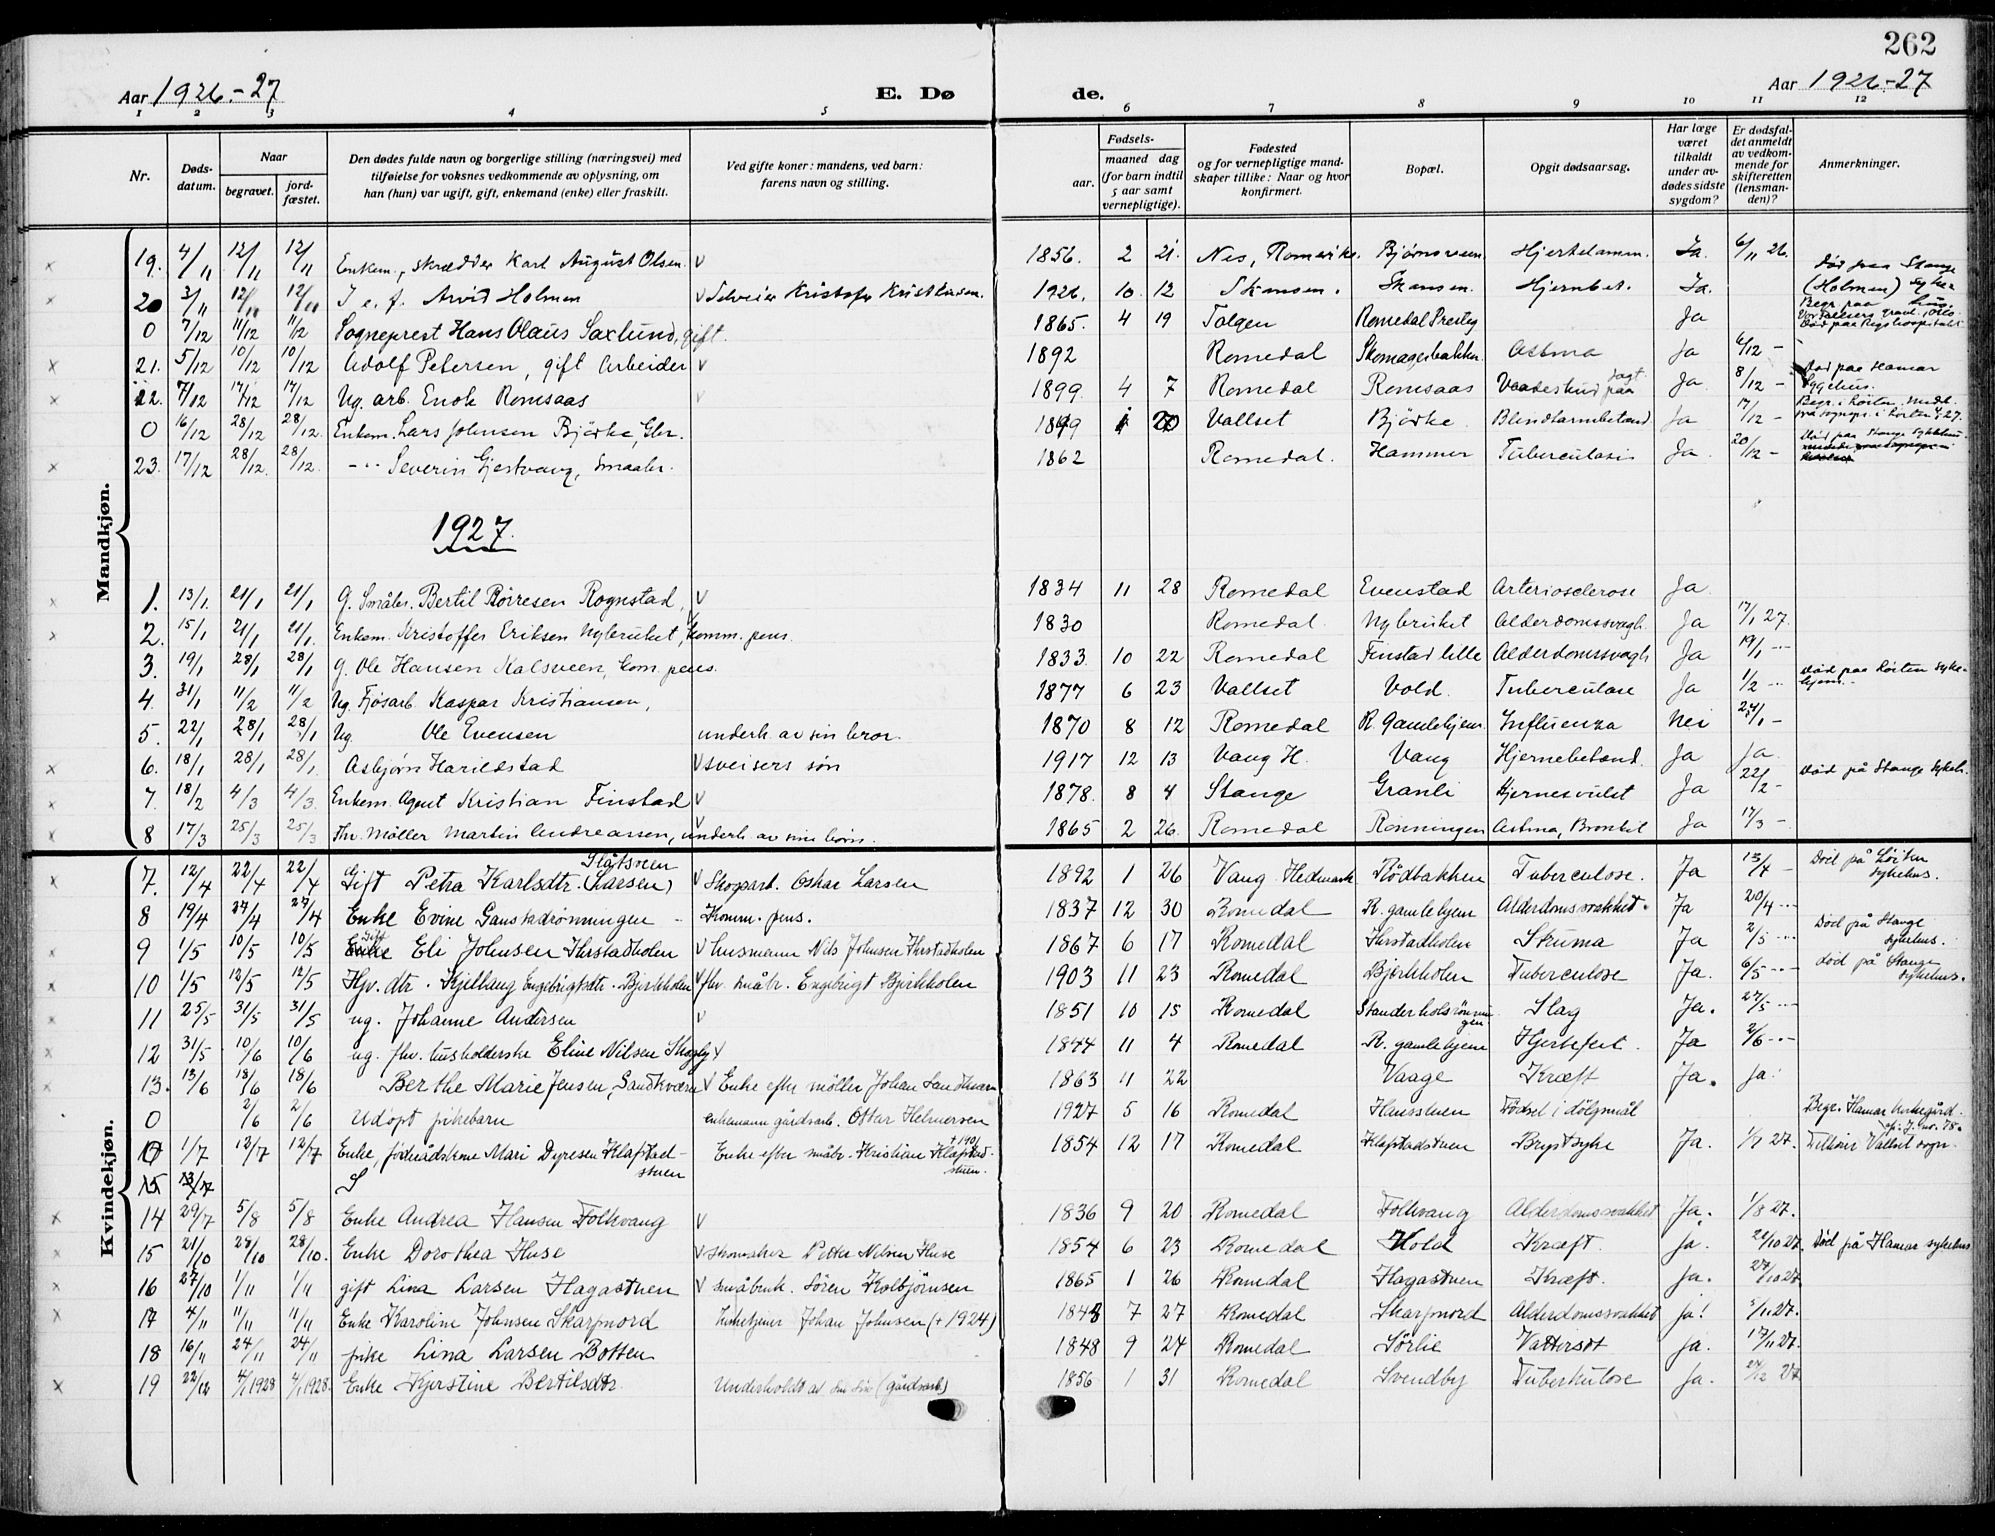 262
Aar 1926.-27
E. Dø
de.
Aar 1926.-27
1 2 3 4 5 6 7 8 9 10 11 12
Nr.
Døds-
datum.
Naar
begravet.
jord-
fæstet.
Den dødes fulde navn og borgerlige stilling (næringsvei) med
tilføielse for voksnes vedkommende av oplysning, om
han (hun) var ugift, gift, enkemand (enke) eller fraskilt.
Ved gifte koner: mandens, ved barn:
farens navn og stilling.
Fødsels-
aar.
maaned dag
(for barn indtil
5 aar samt
vernepligtige).
Fødested
og for vernepligtige mand-
skaper tillike: Naar og hvor
konfirmert.
Bopæl.
Opgit dødsaarsag.
Har læge
været
tilkaldt
under av-
dødes sidste
sygdom?
Er dødsfal-
det anmeldt
av vedkom-
mende for
skifteretten
(lensman-
den)?
Anmerkninger.
Mandkjøn.
19. 4/11 12/11 12/11 Enkem., skrædder Karl August Olsen. V 1856. 2 21. Nes, Romerike. Bjørnsveen Hjertelamm. Ja. 6/11 26.
20 3/11 12/11 12/11 I e. f. Arvid Holmen V Sveiser Kristofer Kristiansen. 1926. 10. 12 Skansen. Skansen. Hjernbet. Ja. Død paa Stange (Holmen) sykehus.
0 7/12 11/12 11/12 Sogneprest Hans Olaus Saxlund, gift. 1865. 4 19 Tolgen Romedal Presteg Ja Begr. paa Vor Frelsers gravl. i Oslo. Død paa Rigshospitalet
21. 5/12 10/12 10/12 Adolf Petersen, gift Arbeider V 1892 Romedal Skomagerbakken. Astma Ja 6/12 -
22. 7/12 17/12 17/12 Ug. arb. Enok Romsaas V 1899. 4 7 Romedal Romsaas Vaadeskud paa jagt Ja. 8/12 - Død paa Hamar Sygehus.
0 16/12 28/12 28/12. Enkem. Lars Johnsen Bjørke, Gbr. 1849 1 20 Vallset Bjørke. Blindtarmbetænd Ja 17/12 -
23. 17/12 28/12. 28/12. -"- Severin Gjestvang, Smaabr. 1862 Romedal. Hammer Tuberculosis Ja. 20/12 - Død paa Stange Sykehus.
1927.
1. 13/1. 21/1 21/1 G. Småbr. Bertil Børresen Rognstad, V 1834 11 28 Romedal Evenstad Arteriosclerose Ja.
2. 15/1 21/1 21/1. Enkem. Kristoffer Eriksen Nybruket, komm. pens. 1830 Romedal. Nybruket Alderdomssvagh. Ja 17/1 27.
3. 19/1 28/1 28/1 g. Ole Hansen Kalsveen, kom. pens. 1833. 10 22 Romedal Finstad lille Alderdomssvagh Ja 19/1 -"-
4. 31/1 11/2 11/2 Ug. Fjøsarb. Kaspar Kristiansen, 1877 6 23 Vallset Vold. Tuberculose Ja 1/2 -"- Død paa Løiten syke-
hjem.-
5. 22/1 28/1 28/1 Ug Ole Evensen underh. av sin bror. 1870 8 12 Romedal R. Gamlehjem. Influenza Nei 24/1 -
6. 18/1 28/1 28/1. Asbjørn Harildstad V sveisers søn 1917 12 13 Vang H. Vang Hjernebetænd. Ja Ja.
7. 18/2 4/3 4/3. Enkem. Agent Kristian Finstad V 1878. 8 4 Stange Granli Hjernesvulst Ja 22/2 - Død på Stange sykeh.
8 17/3 25/3 25/3 Fhv. Møller Martin Andreassen, underh. av sin børn. 1865 2 26. Romedal Rønningen Astma, Bronkit Ja 17/3 -
Kvindekjøn.
7. 12/4 22/4 22/4 Gift Petra Karlsdtr. (Larsen) Slåtsveen V Skogarb. Oskar Larsen 1892 1 26 Vang Hedmark Rødbakken Tuberculose. Ja 13/4 - Død på Løiten sykehus.
8 19/4 27/4 27/4 Enke Evine Gaustadrønningen - Komm. pens. 1837 12 30 Romedal R. gamlehjem Alderdomssvakhet. Ja 20/4 -"-
9 1/5 10/5 10/5 Gift Eli Johnsen Ihrstadholen V husmann Nils Johnsen Ihrstadholen 1867 6 17 Romedal Ihrstadholen Struma Ja 2/5 -"- Død på Stange sykehus.
10 1/5 12/5 12/5 Hjv. dtr. Kjellaug Engebrigtsdtr. Bjerkholen V fhv. småbr. Engebrigt Bjerkholen 1903 11 23 Romedal Bjerkholen Tuberculose Ja. 6/5 -"- død på Stange sykehus.
11 25/5 31/5 31/5 ug. Johanne Andersen V 1851 10 15 Romedal Slag Ja. 27/5 -"-
12 31/5 10/6 10/6 ug. fhv. husholderske Eline Nilsen Skogly V 1844 11 4 Romedal R. gamlehjem Hjertefeil. Ja 2/6 -"-
13. 13/6 18/6 18/6 Berthe Marie Jensen, Sandkværn V Enke efter møller Johan Sandkværn 1863 11 22 Vaage Kræft Ja. Ja.
0 2/6 2/6 Udøpt pikebarn enkemann gårdsarb. Ottar Helmersen 1927 5 16 Romedal Hansstuen Fødsel i dølgsmål Begr. Hamar kirkegård. cfr. J. no. 78.
0 1/7 12/7 12/7 Enke, føderådskone Mari Dyresen Klafstad-
stuen Enke efter småbr. Kristian Klafstad-
stuen. + 1901 1854 12 17 Romedal Klafstadstuen Brystsyke Ja. 1/7 27. Tilhører Vallset sogn.
14 29/7 5/8 5/8 Enke Andrea Hansen Folkvang V 1836 9 20 Romedal Folkvang Alderdomssvakhet Ja. 1/8 27.
15 21/10 28/10 28/10. Enke Dorothea Huse V skomaker Petter Nilsen Huse 1854 6 23 Romedal Hold Kræft. Ja. 22/10 27. Død på Hamar sykehus
16 27/10 1/11 1/11 gift Lina Larsen Hagastuen V småbruk. Søren Kolbjørnsen 1865 1 26 Romedal Hagastuen Kræft. Ja. 27/10 27.
17 4/11 11/11 11/11 Enke Karoline Johnsen Skarpnord kirketjener Johan Johnsen (+ 1924) 1848 7 27 Romedal Skarpnord Alderdomssvakhet ja! 5/11 27.
18 16/11 24/11 24/11 pike Lina Larsen Botten 1848 9 24 Romedal Sørlie Vattersot ja. 17/11 27.
19 22/12 4/1 1928 4/1 1928. Enke Kjerstine Bertilsdtr. Underholdt av sin søn (gårdsarb) 1856 1 31 Romedal Svendby Tuberkulose Ja. 24/12 27